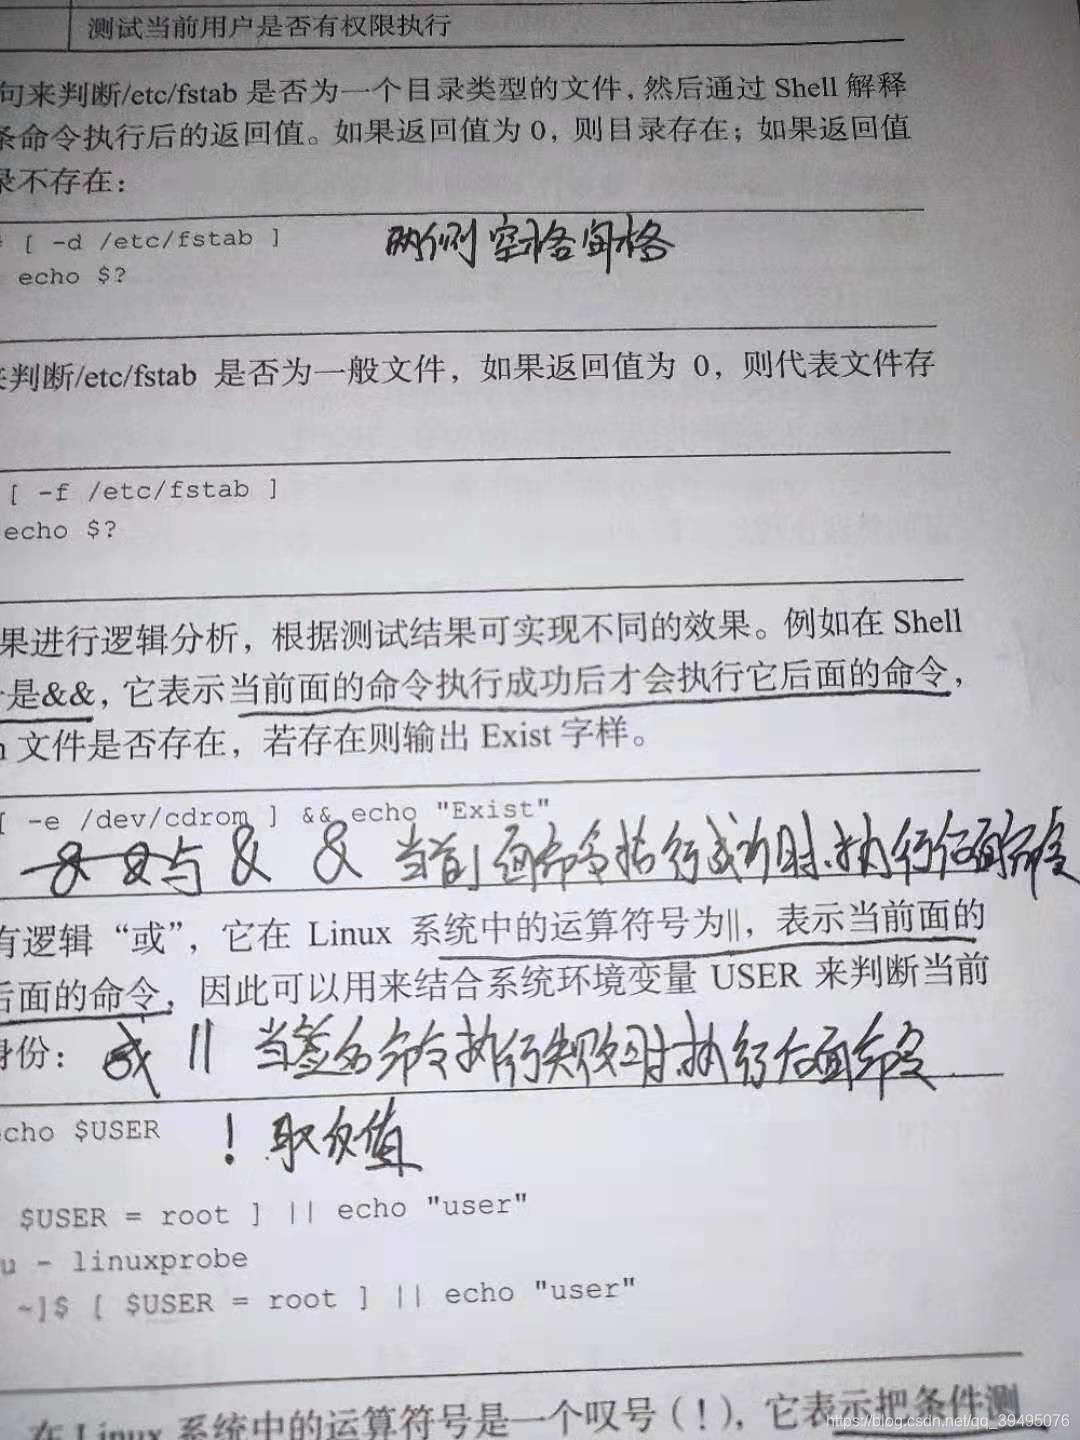 测试当前用户是否有权限执行
句来判断/etc/fstab 是否为一个目录类型的文件，然后通过 Shell 解释
条命令执行后的返回值。如果返回值为 0，则目录存在；如果返回值
录不存在：
[ -d /etc/fstab ] 两侧空格间格
echo $?
来判断/etc/fstab 是否为一般文件，如果返回值为 0，则代表文件存
[ -f /etc/fstab ]
echo $?
果进行逻辑分析，根据测试结果可实现不同的效果。例如在 Shell
是&&，它表示当前面的命令执行成功后才会执行它后面的命令，
文件是否存在，若存在则输出 Exist 字样。
[ -e /dev/cdrom ] && echo "Exist"
与 & & 当前面命令执行成功时.执行后面命令
有逻辑“或”，它在 Linux 系统中的运算符号为||，表示当前面的
后面的命令，因此可以用来结合系统环境变量 USER 来判断当前
身份：
或 || 当前面命令执行失败时.执行后面命令
echo $USER
! 取反值
$USER = root ] || echo "user"
u - linuxprobe
~]$ [ $USER = root ] || echo "user"
在 Linux 系统中的运算符号是一个叹号（！），它表示把条件测
https://blog.csdn.net/qq_39495076